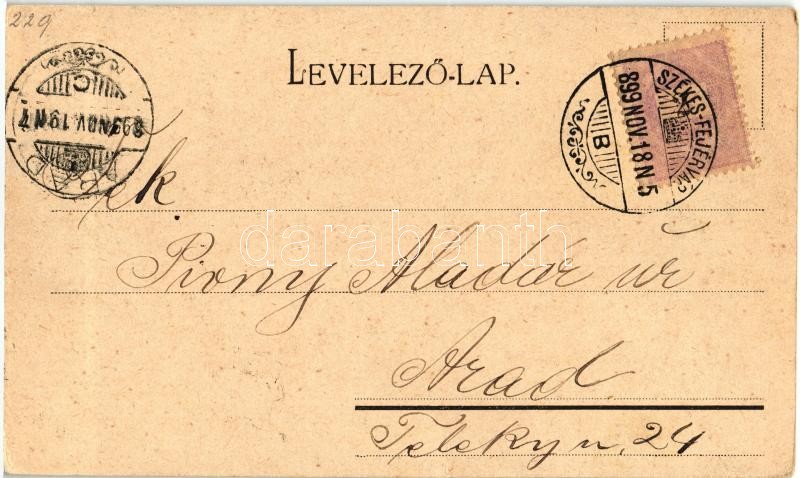 229
LEVELEZŐ-LAP.
SZÉKES-FEJÉRVÁR
899 NOV. 18 N 5
B
C
899 NOV. 19 N 7
ARAD
darabanth
Pivny Aladár úr
Arad
Teleky u. 24